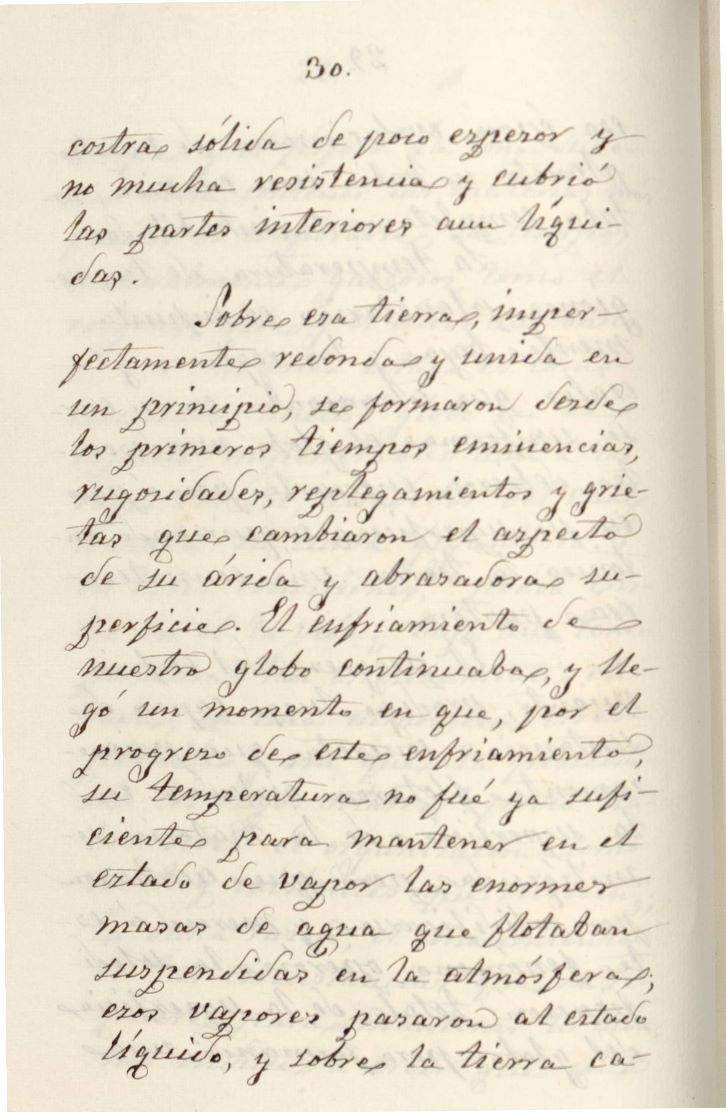 30.
costra sólida de poco espesor y
no mucha resistencia y cubrió
las partes interiores aun líqui-
das.
Sobre esa tierra, imper-
fectamente redonda y unida en
un principio, se formaron desde
los primeros tiempos eminencias,
rugosidades, replegamientos y grie-
tas que cambiaron el aspecto
de su árida y abrasadora su-
perficie. El enfriamiento de
nuestro globo continuaba, y lle-
gó un momento en que, por el
progreso de este enfriamiento,
su temperatura no fué ya sufi-
ciente para mantener en el
estado de vapor las enormes
masas de agua que flotaban
suspendidas en la atmósfera;
esos vapores pasaron al estado
líquido, y sobre la tierra ca-